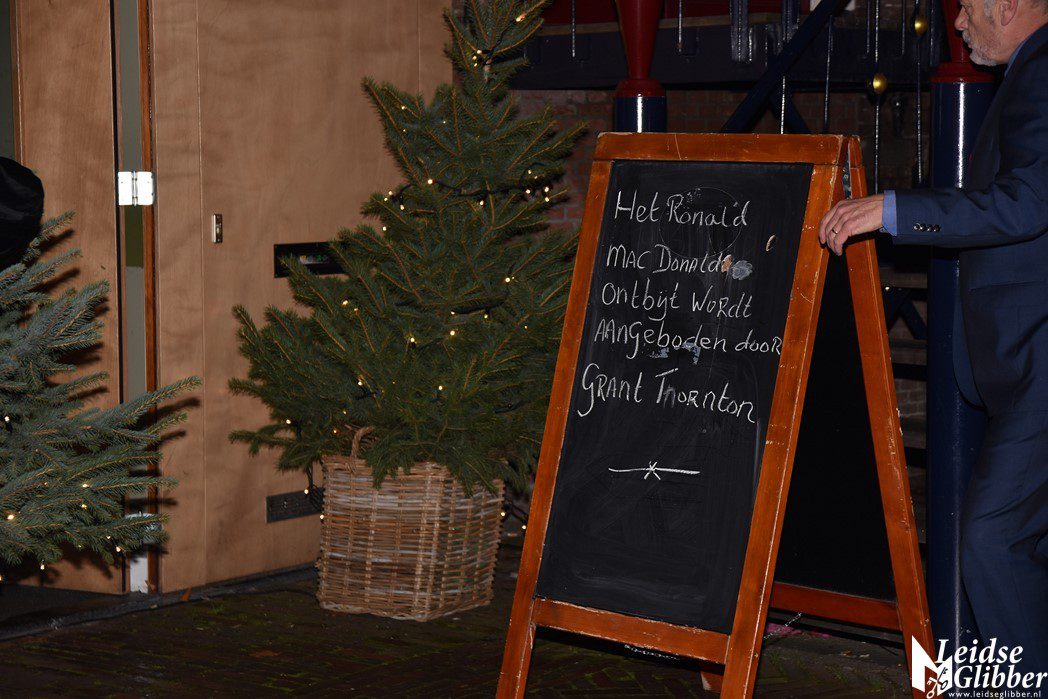 Het Ronald
MAC Donald
Ontbijt Wordt
AANgeboden dooR
GRANT THORNTON
Leidse
Glibber
www.leidseglibber.nl